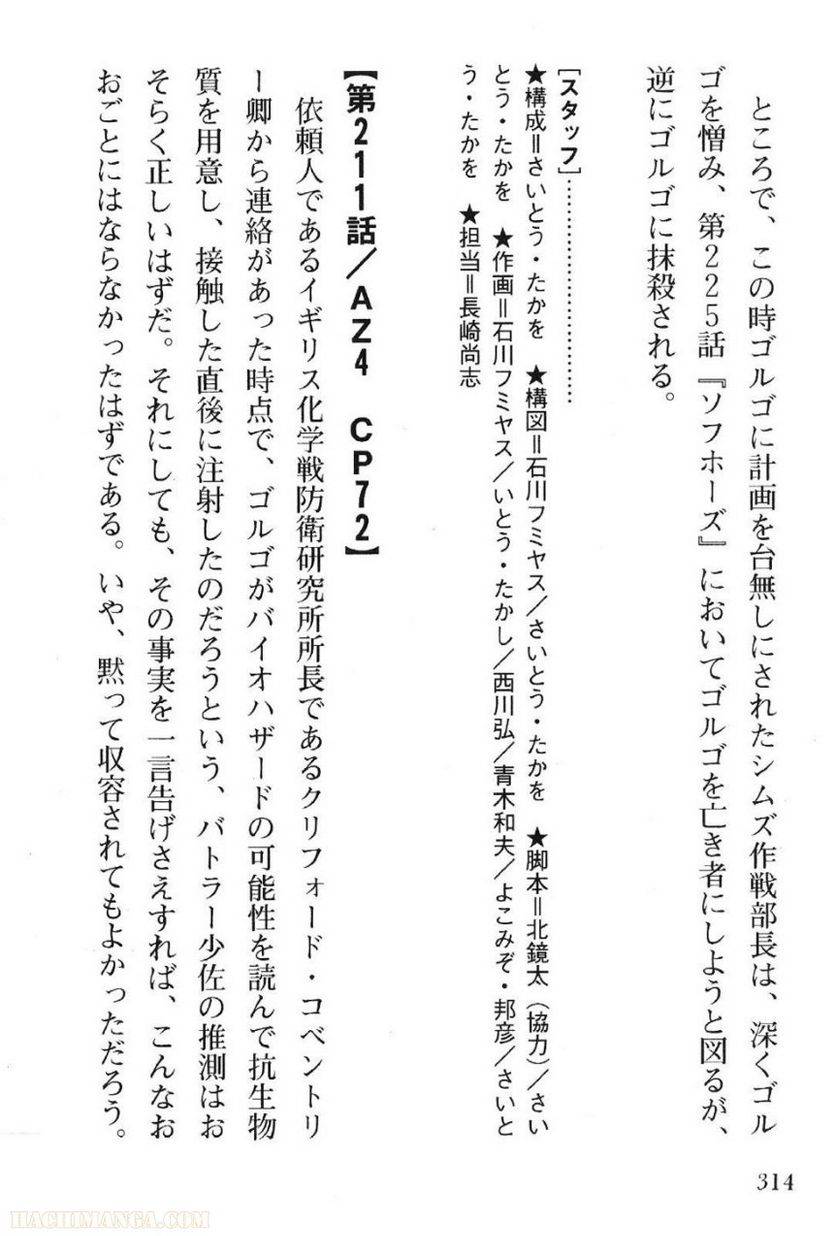 ところで、この時ゴルゴに計画を台無しにされたシムズ作戦部長は、深くゴル
ゴを憎み、第225話『ソフホーズ』においてゴルゴを亡き者にしようと図るが、
逆にゴルゴに抹殺される。
[スタッフ]……………………………
★構成＝さいとう・たかを　★構図＝石川フミヤス／さいとう・たかを　★脚本＝北鏡太（協力）／さい
とう・たかを　★作画＝石川フミヤス／いとう・たかし／西川弘／青木和夫／よこみぞ・邦彦／さいと
う・たかを　★担当＝長崎尚志
【第211話／AZ4　CP72】
依頼人であるイギリス化学戦防衛研究所所長であるクリフォード・コベントリ
ー卿から連絡があった時点で、ゴルゴがバイオハザードの可能性を読んで抗生物
質を用意し、接触した直後に注射したのだろうという、バトラー少佐の推測はお
そらく正しいはずだ。それにしても、その事実を一言告げさえすれば、こんなお
おごとにはならなかったはずである。いや、黙って収容されてもよかっただろう。
314
HACHIMANGA.COM